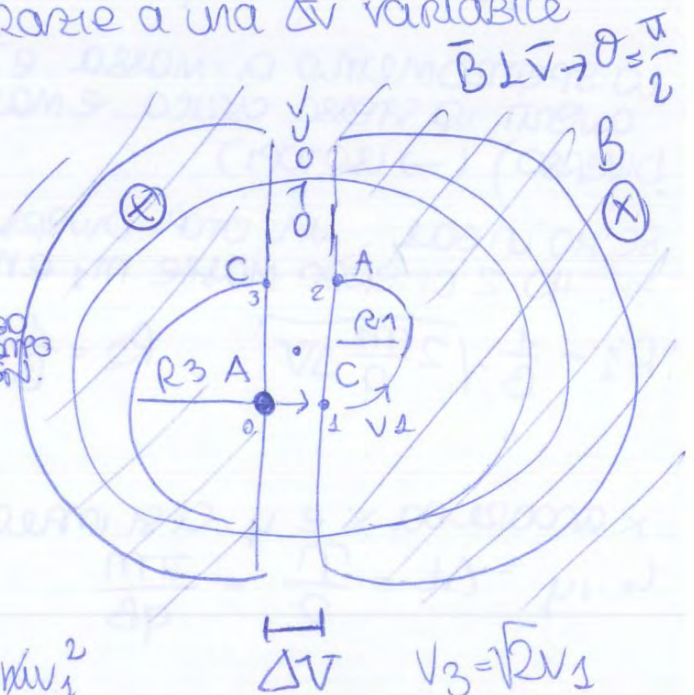 grazie a una ΔV variabile
B̄ ⊥ v̄ → θ = π/2
V
U
O
T
O
B
C A
3 2
R1
R3 A C
0 1 V1
ΔV
V3 = √2 V1